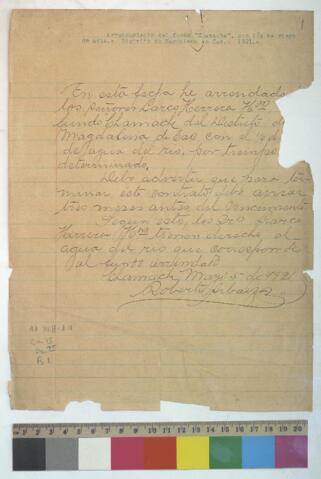 Arrendamiento del fundo "Chamack", con 1/2 de riego
de agua.- Distrito de Magdalena de Cao. 1921.-
En esta fecha he arrendado
los Señores Larco Herrera Hnos
fundo Chamack del distrito de
Magdalena de Cao con el 1/2 de
de agua de rio, por tiempo
determinado.
Debo advertir que para ter
minar este contrato debo avisar
tres meses antes del vencimiento
Segun esto, los Srs Larco
Herrera Hnos tienen derecho al
agua del rio que corresponde
al fundo arrendado
Chamack, Marzo 5 de 1921
Roberto
1 2 3 4 5 6 7 8 9 10 11 12 13 14 15 16 17 18 19 20